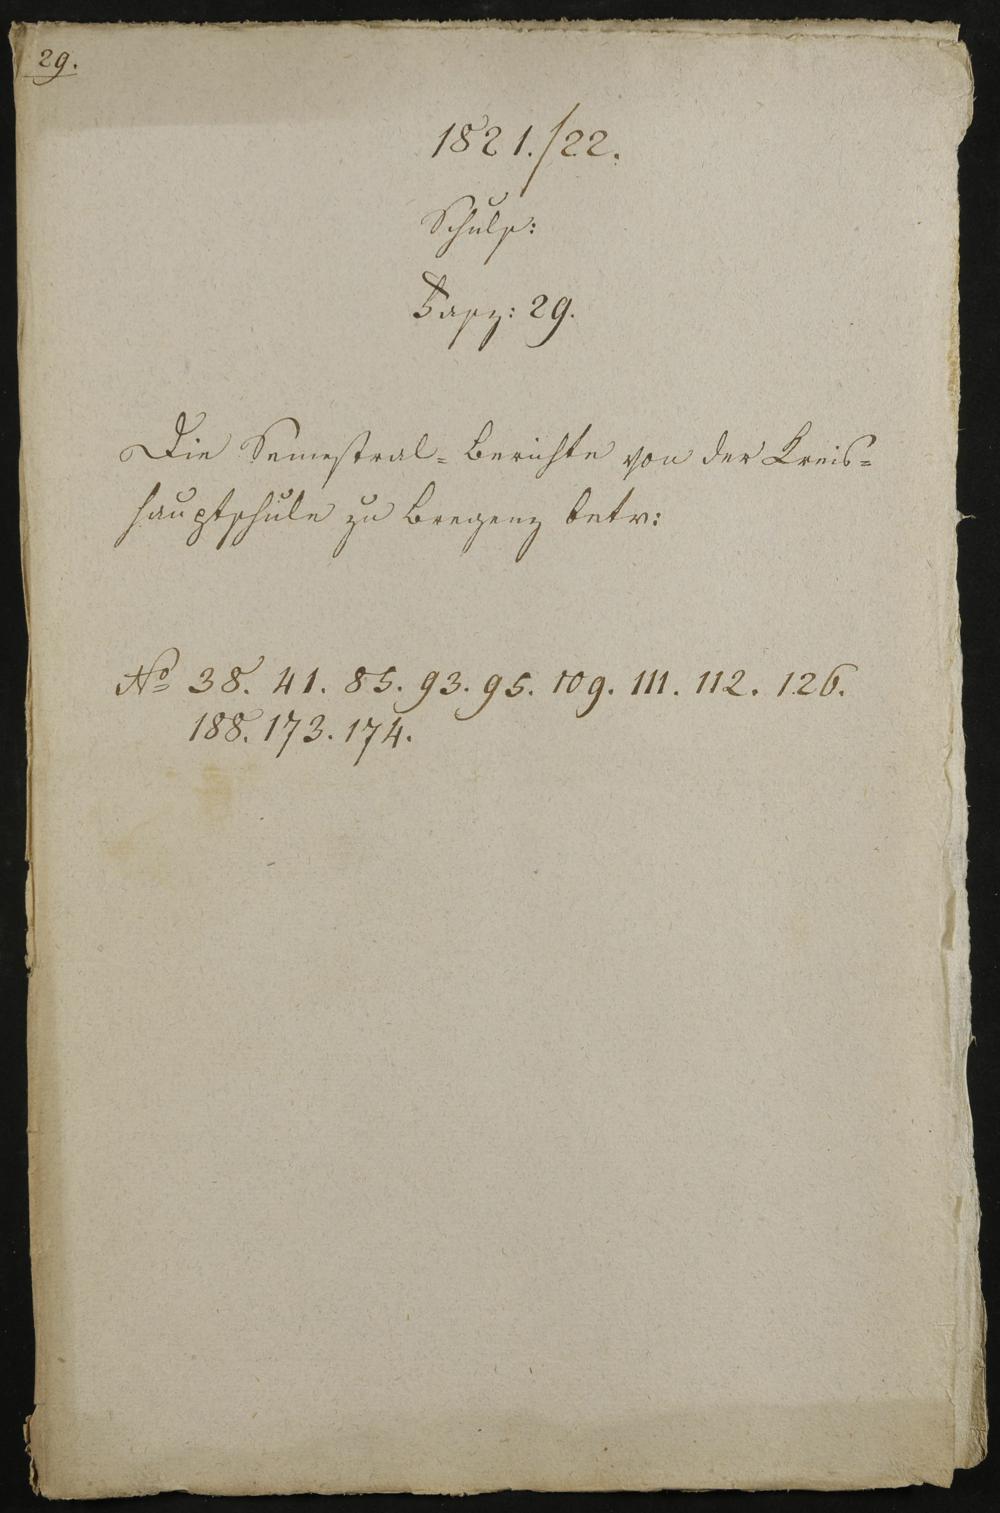 29.
1821./22.
Schuls:
Fasz: 29.
Die Semestral-Berichte von der Kreis-
hauptschule zu Bregenz betr:
No 38. 41. 85. 93. 95. 109. 111. 112. 126.
188. 173. 174.